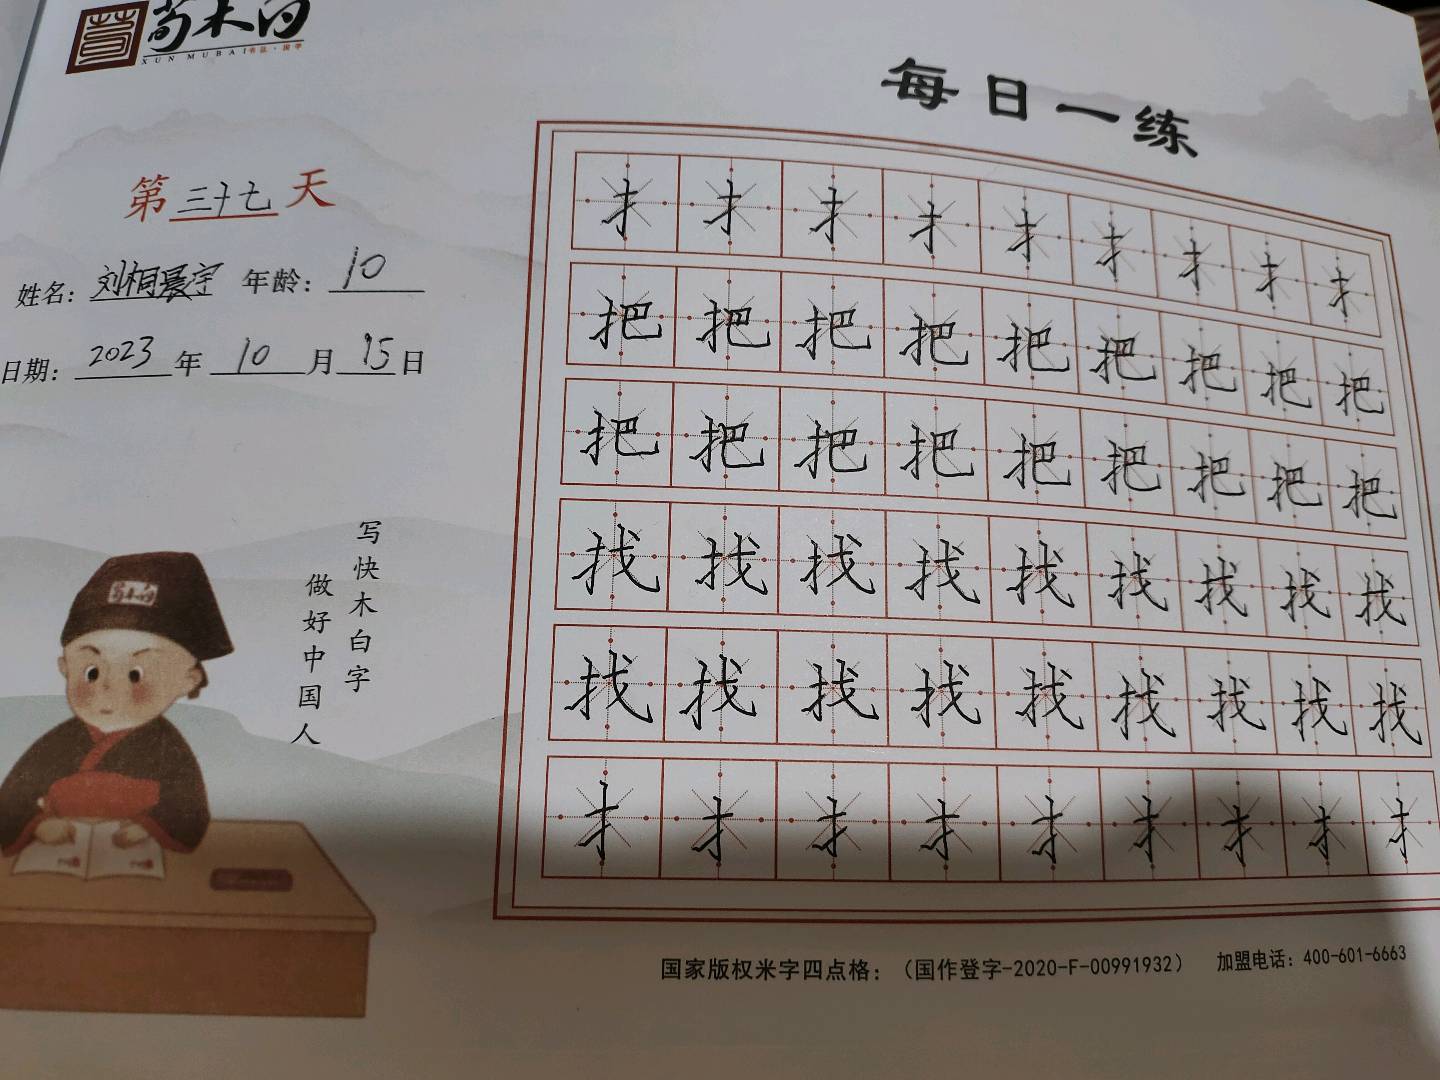 荀木白
XUN MUBAI书法·国学
每日一练
第三十七天
姓名：刘桐晨宇 年龄：10
日期：2023年10月15日
写快木白字
做好中国人
荀木白
扌扌扌扌扌扌扌扌扌
把把把把把把把把把
把把把把把把把把把
找找找找找找找找找
找找找找找找找找找
扌扌扌扌扌扌扌扌扌
国家版权米字四点格：（国作登字-2020-F-00991932） 加盟电话：400-601-6663